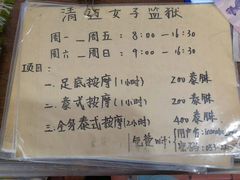 清迈女子监狱
周一 — 周五：8:00 — 16:30
周六 — 周日：9:00 — 16:30
项目：
一. 足底按摩(1小时) 200泰铢
二. 泰式按摩(1小时) 200泰铢
三. 全身泰式按摩(2小时) 400泰铢
免费wifi：用户名：
密码：053-